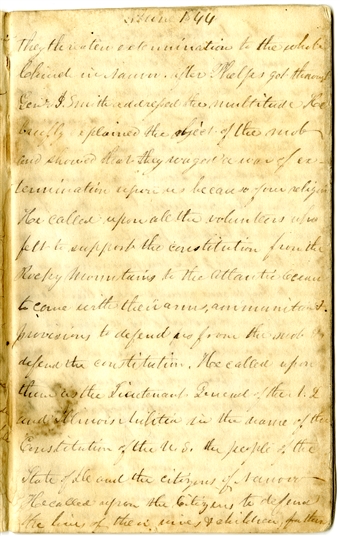 June 1844
They threaten extermination to the whole
behind in Nauvoo. After Phelps got through
Genl. J. Smith addressed the multitude He
briefly explained the object of the mob
and showed that they waged a war of ex-
termination upon us because of our religion
He called upon all the volunteers who
felt to support the constitution from the
Rocky Mountains to the Atlantic Ocean
to come with their arms, ammunition &
provisions to defend us from the mob &
defend the constitution. He called upon
them as the Lieutenant General of the N. L
and Illinois Militia in the name of the
Constitution of the U S. the people of the
State of Ill and the citizens of Nauvoo
He called upon the Citizens to defend
the lives of their wives & children, fathers